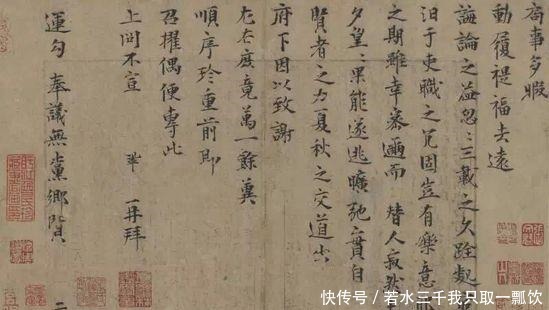 局事多暇
動履禔福去遠
誨論之益忽〻三載之久跧處
汩于吏職之冗固豈有樂意
之期雖幸密邇而替人寂然
夕望〻果能遂逃曠弛實自
賢者之力夏秋之交道出
府下因以致謝
左右庶竟萬一餘冀
順序珍重前即
召擢偶便專此
上問不宣 鞏再拜
運勾奉議無黨鄉賢
二
快传号/若水三千我只取一瓢饮